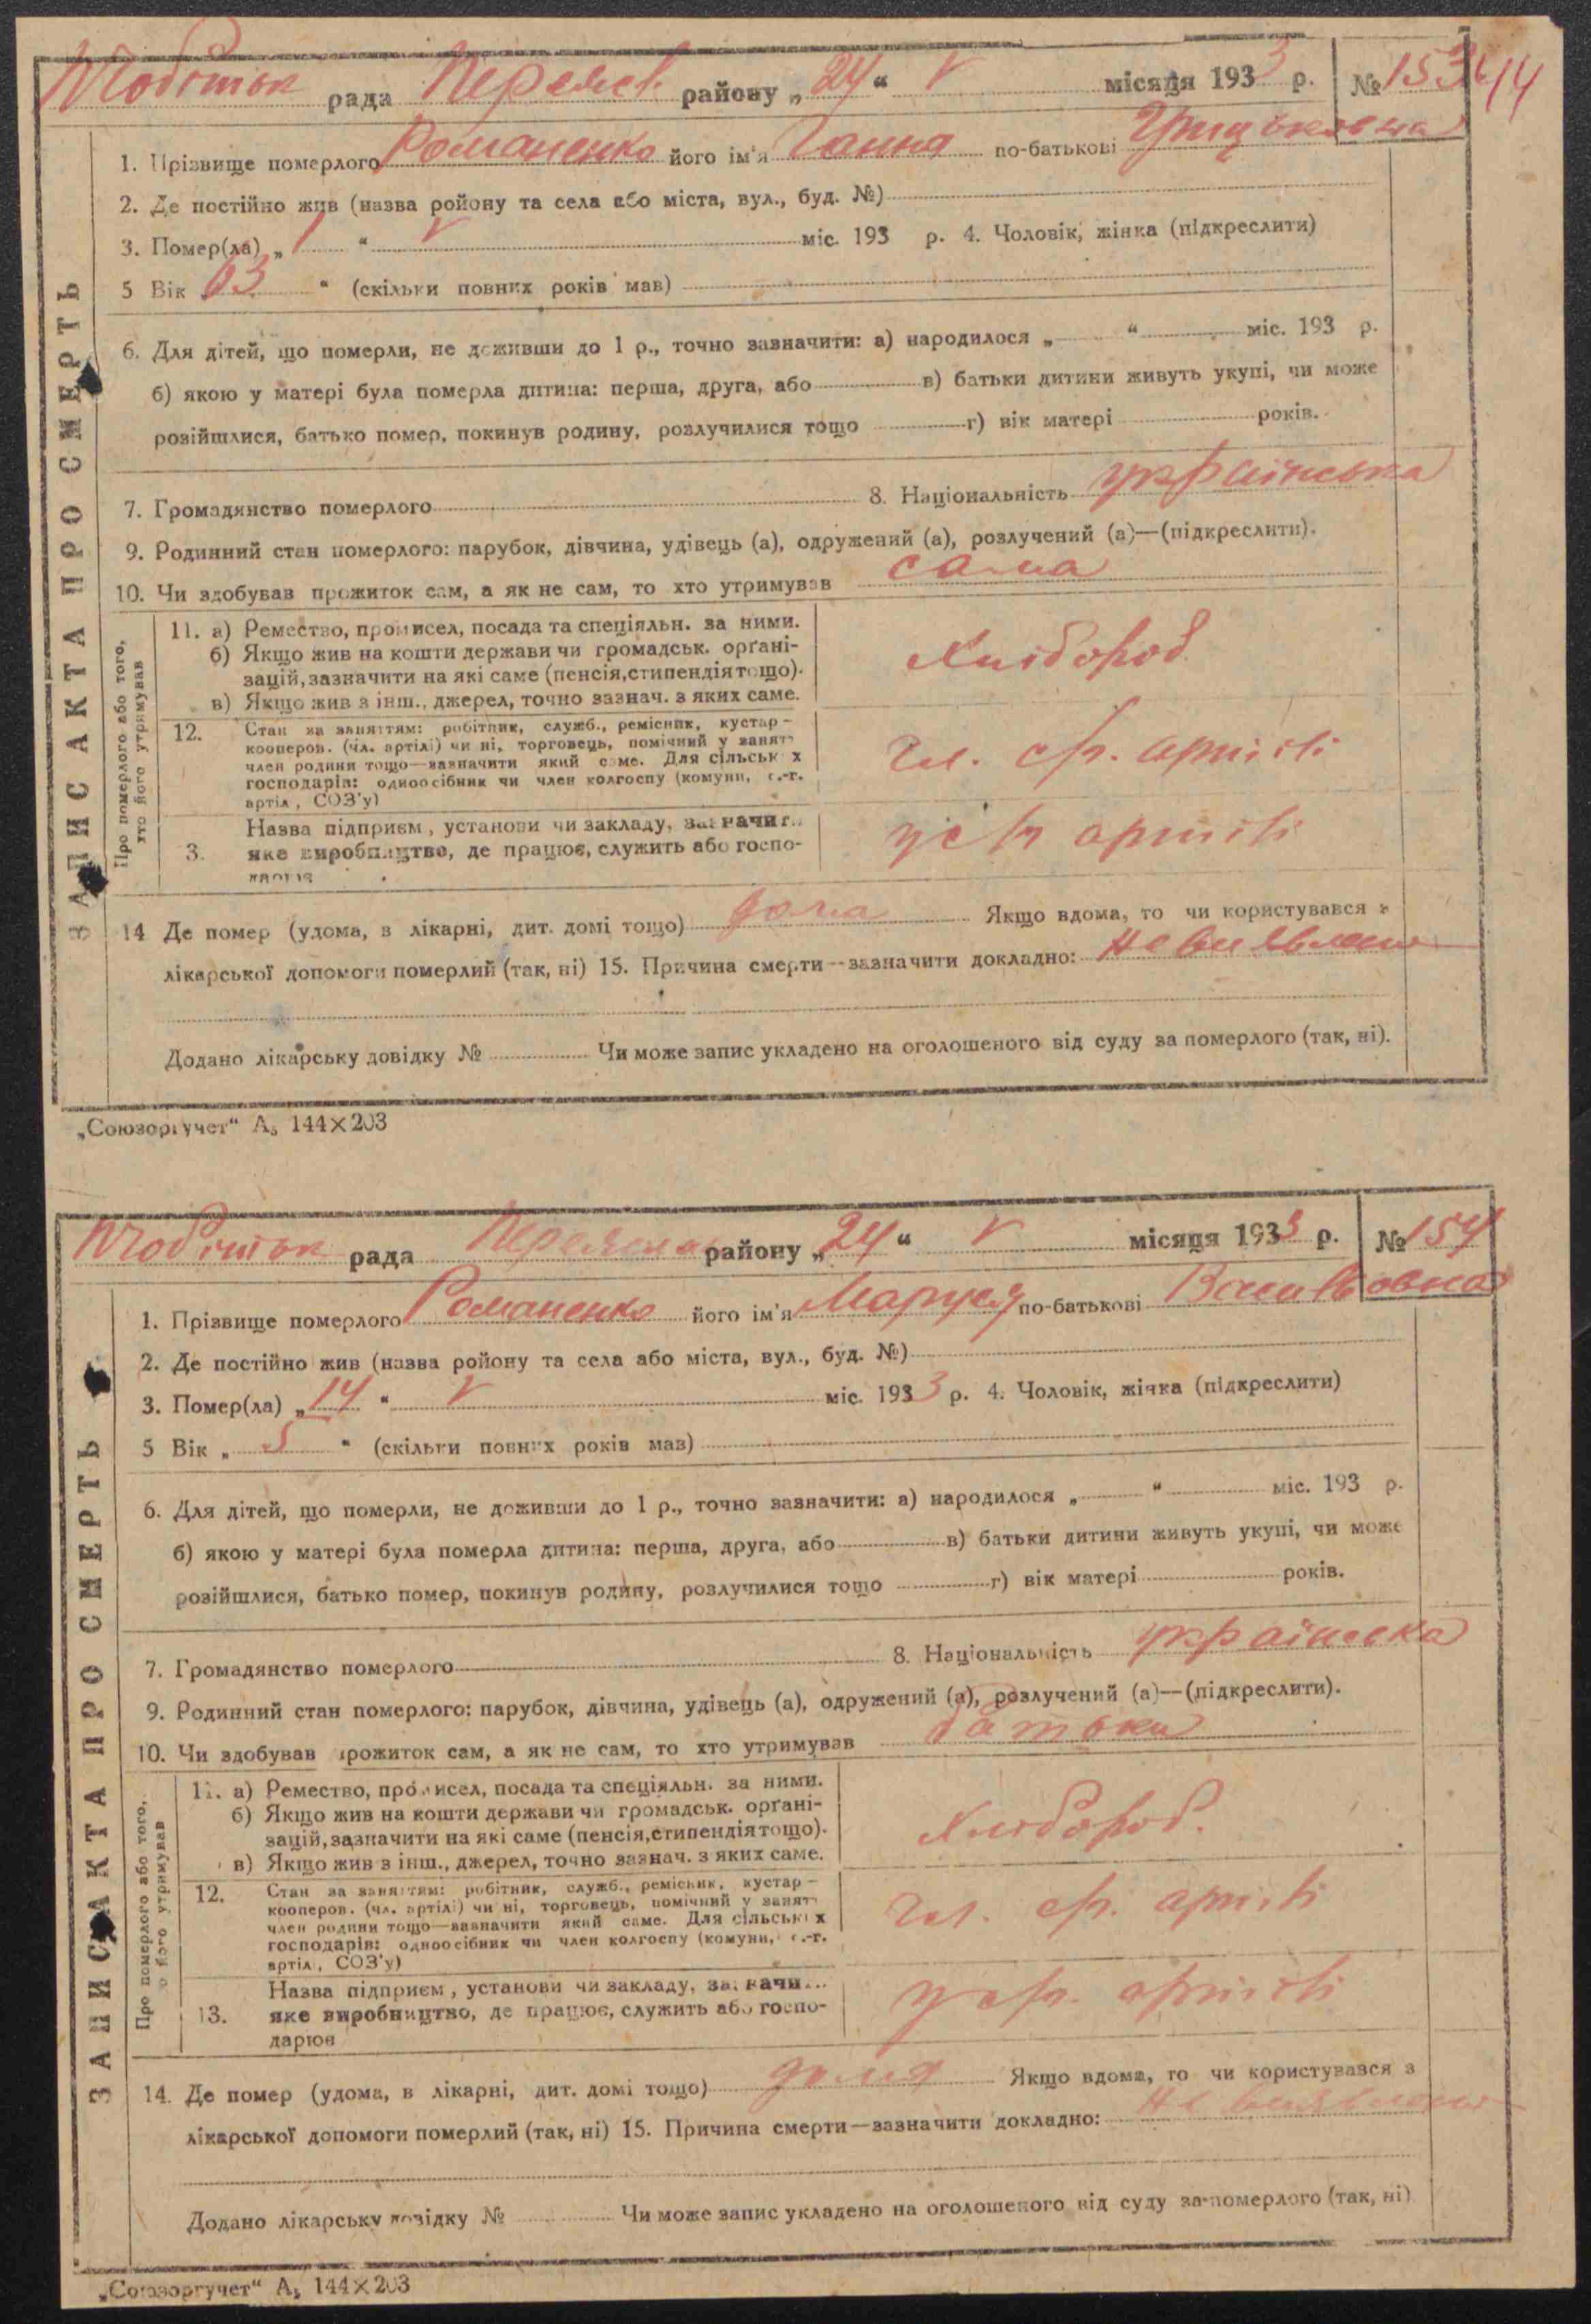 рада Переясл. району „24“ V місяця 1933 р. № 153 44
ЗАПИС АКТА ПРО СМЕРТЬ
1. Прізвище померлого Романенко його ім'я Ганна по-батькові
2. Де постійно жив (назва ройону та села або міста, вул., буд. №)
3. Помер(ла) „1“ V міс. 193 р. 4. Чоловік, жінка (підкреслити)
5 Вік 63 “ (скільки повних років мав)
6. Для дітей, що померли, не доживши до 1 р., точно зазначити: а) народилося „ “ міс. 193 р.
б) якою у матері була померла дитина: перша, друга, або в) батьки дитини живуть укупі, чи може
розійшлися, батько помер, покинув родину, розлучилися тощо г) вік матері років.
7. Громадянство померлого 8. Національність українська
9. Родинний стан померлого: парубок, дівчина, удівець (а), одружений (а), розлучений (а)—(підкреслити).
10. Чи здобував прожиток сам, а як не сам, то хто утримував сама
Про померлого або того, хто його утримував
11. а) Ремество, промисел, посада та спеціяльн. за ними.
б) Якщо жив на кошти держави чи громадськ. орґані-
зацій, зазначити на які саме (пенсія, стипендія тощо).
в) Якщо жив з інш., джерел, точно зазнач. з яких саме.
Хлібороб
12. Стан за заняттям: робітник, служб., ремісник, кустар–
кооперов. (чл. артілі) чи ні, торговець, помічний у занят
член родини тощо—зазначити який саме. Для сільськ х
господарів: одноосібник чи член колгоспу (комуни, с.-г.
артіл , СОЗ'у)
Чл. с/г. артілі
3. Назва підприєм , установи чи закладу, зазначит
яке виробництво, де працює, служить або госпо-
дарює
у с/г артілі
14 Де помер (удома, в лікарні, дит. домі тощо) дома Якщо вдома, то чи користувався з
лікарської допомоги померлий (так, ні) 15. Причина смерти—зазначити докладно: не виявлено
Додано лікарську довідку № Чи може запис укладено на оголошеного від суду за померлого (так, ні).
„Союзоргучет“ А₅ 144×203
рада району „24“ V місяця 1933 р. № 154
ЗАПИС АКТА ПРО СМЕРТЬ
1. Прізвище померлого Романенко його ім'я Маруся по-батькові Васильовна
2. Де постійно жив (назва ройону та села або міста, вул., буд. №)
3. Помер(ла) „14“ V міс. 1933 р. 4. Чоловік, жінка (підкреслити)
5 Вік „5“ (скільки повних років мав)
6. Для дітей, що померли, не доживши до 1 р., точно зазначити: а) народилося „ “ міс. 193 р.
б) якою у матері була померла дитина: перша, друга, або в) батьки дитини живуть укупі, чи може
розійшлися, батько помер, покинув родину, розлучилися тощо г) вік матері років.
7. Громадянство померлого 8. Національність українська
9. Родинний стан померлого: парубок, дівчина, удівець (а), одружений (а), розлучений (а)—(підкреслити).
10. Чи здобував прожиток сам, а як не сам, то хто утримував батьки
Про померлого або того, його утримував
11. а) Ремество, промисел, посада та спеціяльн. за ними.
б) Якщо жив на кошти держави чи громадськ. орґані-
зацій, зазначити на які саме (пенсія, стипендія тощо).
в) Якщо жив з інш., джерел, точно зазнач. з яких саме.
Хлібороб.
12. Стан за заняттям: робітник, служб., ремісник, кустар–
кооперов. (чл. артілі) чи ні, торговець, помічний у занят
член родини тощо—зазначити який саме. Для сільськ х
господарів: одноосібник чи член колгоспу (комуни, с.-г.
артіл , СОЗ'у)
Чл. с/г. артілі
13. Назва підприєм , установи чи закладу, зазначи
яке виробництво, де працює, служить або госпо-
дарює
у с/г. артілі
14. Де помер (удома, в лікарні, дит. домі тощо) дома Якщо вдома, то чи користувався з
лікарської допомоги померлий (так, ні) 15. Причина смерти—зазначити докладно: не виявлено
Додано лікарську довідку № Чи може запис укладено на оголошеного від суду за померлого (так, ні)
„Союзоргучет“ А₅ 144×203